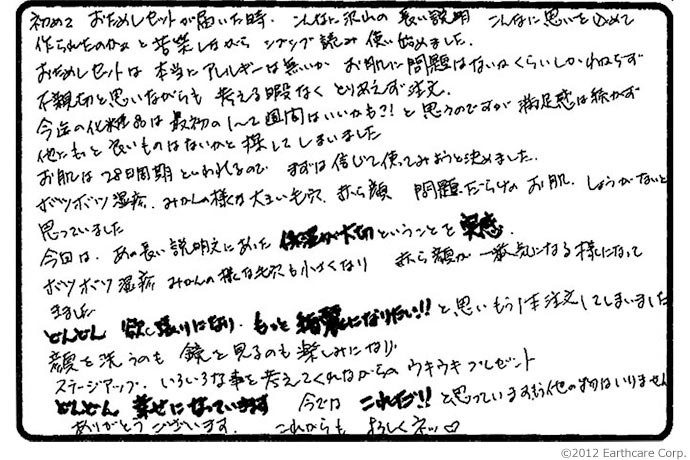 初めて おためしセットが届いた時、こんなに沢山の長い説明 こんなに思いを込めて
作られたのかな と苦笑しながら シブシブ読み 使い始めました。
おためしセットは 本当にアレルギーは無いか お肌に問題はないかくらいしかわからず
不親切と思いながらも 考える暇なく とりあえず注文。
今迄の化粧品は 最初の1〜2週間はいいかも?! と思うのですが 満足感は続かず
他にもっと良いものはないかと探してしまいました
お肌は28日周期といわれるので まずは信じて使ってみようと決めました。
ボツボツ湿疹、みかんの様な大きい毛穴、赤ら顔 問題だらけのお肌、しょうがないと
思っていました
今回は、あの長い説明文にあった 保湿が大切ということを 実感。
ボツボツ湿疹 みかんの様な毛穴も小さくなり 赤ら顔が一番気になる様になって
きました
どんどん 欲し張りになり、もっと綺麗になりたい!! と思い もう1本注文してしまいました
顔を洗うのも 鏡を見るのも楽しみになり
ステージアップ、いろいろな事を考えてくれながらの ウキウキプレゼント
どんどん 幸せになっています 今では これだ!! と思っています もう他の物はいりません
ありがとうございます。 これからも よろしくネッ♡
©2012 Earthcare Corp.